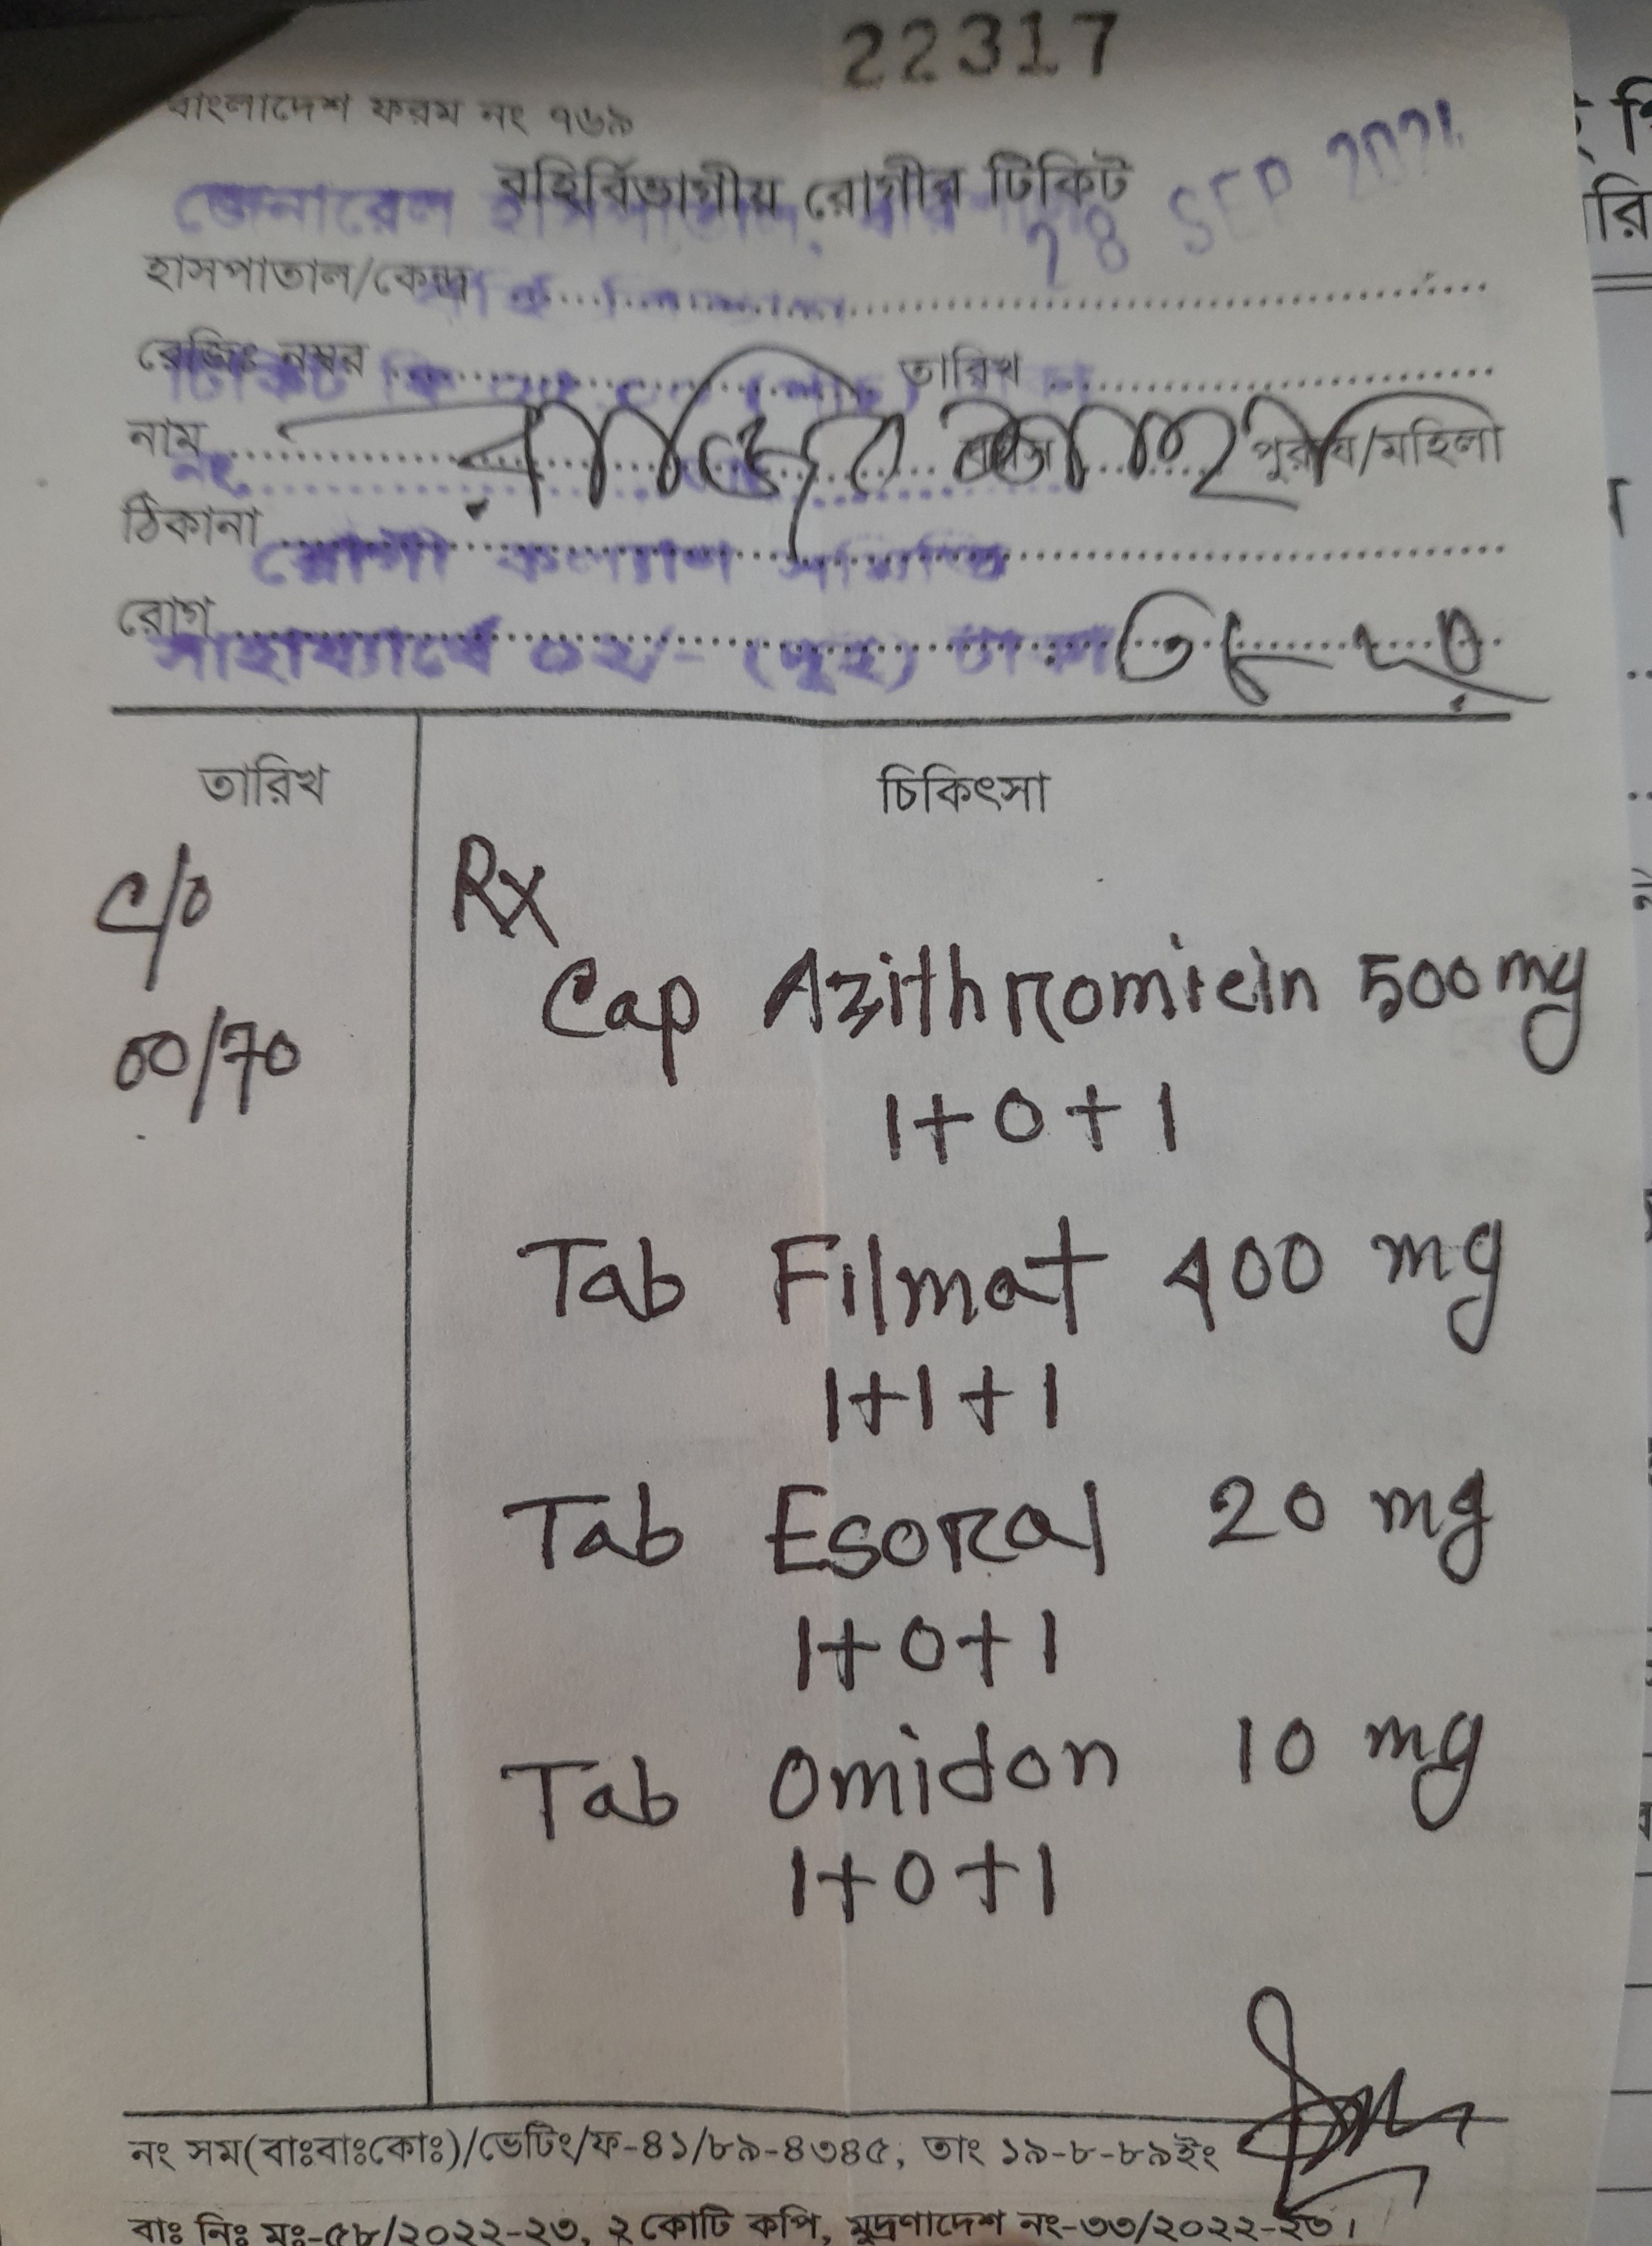 22317
বাংলাদেশ ফরম নং ৭৬৯
বহির্বিভাগীয় রোগীর টিকিট
জেনারেল হাসপাতাল,
28 SEP 2024
হাসপাতাল/কেন্দ্র
রেজিঃ নম্বর তারিখ
টিকিট
নাম বয়স পুরুষ/মহিলা
নং
ঠিকানা
রোগী কল্যাণ সমিতি
রোগ
সাহায্যার্থে ০২/- (দুই) টাকা
তারিখ চিকিৎসা
C/O
Rx
Cap Azithromicin 500 mg
00/70
1+0+1
Tab Filmat 400 mg
1+1+1
Tab Esoral 20 mg
1+0+1
Tab Omidon 10 mg
1+0+1
নং সম(বাঃবাঃকোঃ)/ভেটিং/ফ-৪১/৮৯-৪৩৪৫, তাং ১৯-৮-৮৯ইং
বাঃ নিঃ মঃ-৫৮/২০২২-২৩, ২ কোটি কপি, মুদ্রণাদেশ নং-৩৩/২০২২-২৩।